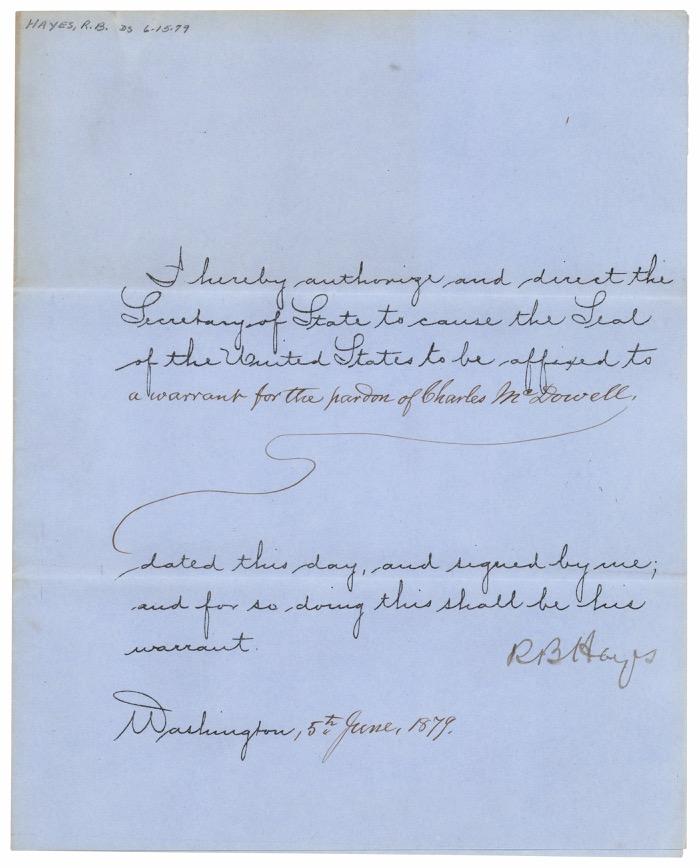 HAYES, R.B. DS 6-15-79
I hereby authorize and direct the
Secretary of State to cause the Seal
of the United States to be affixed to
a warrant for the pardon of Charles McDowell,
dated this day, and signed by me;
and for so doing this shall be his
warrant.
R B Hayes
Washington, 5th June, 1879.